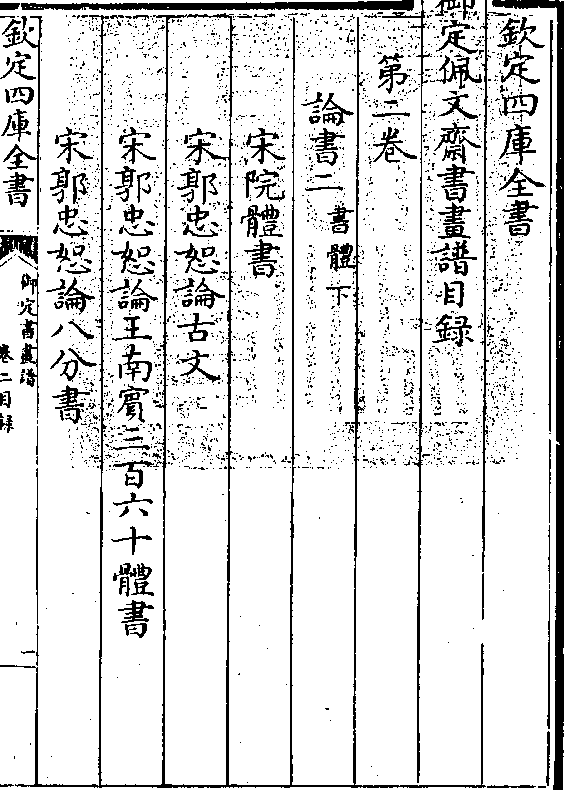 欽定四庫全書
御定佩文齋書畫譜目録
第二卷
論書二 書體下
宋院體書
宋郭忠恕論古文
宋郭忠恕論王南賓三百六十體書
宋郭忠恕論八分書
欽定四庫全書
御定書畫譜
卷二目録
一